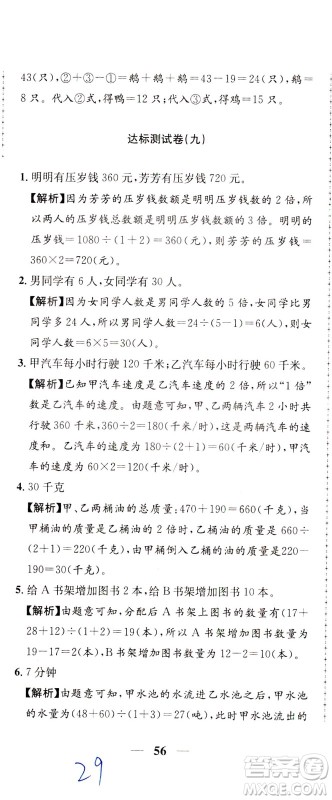 43(只),②+③-①=鹅+鹅=43-19=24(只),鹅=
8(只)。代入②式,得鸭=12(只);代入③式,得鸡=11(只)。
达标测试卷(九)
1. 明明有压岁钱 360 元,芳芳有压岁钱 720 元。
【解析】因为芳芳的压岁钱数额是明明压岁钱数的 2 倍,所
以两人的压岁钱总数额是明明压岁钱数额的(1+2)倍。
明明的压岁钱=1080÷(1+2)=360(元),芳芳的压岁钱=
360×2=720(元)。
2. 男同学有 6 人,女同学有 30 人。
【解析】因为女同学人数是男同学人数的 5 倍,所以两班
总人数是男同学人数的(1+5)倍。男同学人数=36÷(1+
5)=6(人),女同学人数=6×5=30(人)。
3. 甲汽车每小时行驶 120 千米;乙汽车每小时行驶 60 千米。
【解析】已知甲汽车的速度是乙汽车速度的 2 倍,所以“1 倍”
数是乙汽车的速度。由题意可知,甲、乙两辆汽车 2 小时共
行驶了 360 千米,则两车的速度和为 360÷2=180(千米/
时)。乙汽车的速度为 180÷(1+2)=60(千米/时),甲汽
车的速度为 60×2=120(千米/时)。
4. 30 千克
【解析】甲、乙两桶油的总质量:470+190=660(千克),当
甲桶油的质量是乙桶油的 2 倍时,乙桶油的质量为 660÷
(2+1)=220(千克),所以甲桶倒入乙桶的质量为 220-
190=30(千克)。
5. 给 A 书架增加图书 2 本,给 B 书架增加图书 10 本。
【解析】由题意可知,分配之后 A 书架上应有图书(17+
28+12)÷(1+2)=19(本),所以 A 书架增加图书 19-
17=2(本),B 书架增加图书 12-2=10(本)。
6. 7 分钟
【解析】由题意可知,甲水池的水流进乙水池后,甲水池
的水量为(48+60)÷(1+2)=36(吨),甲水池流出的水
56
29